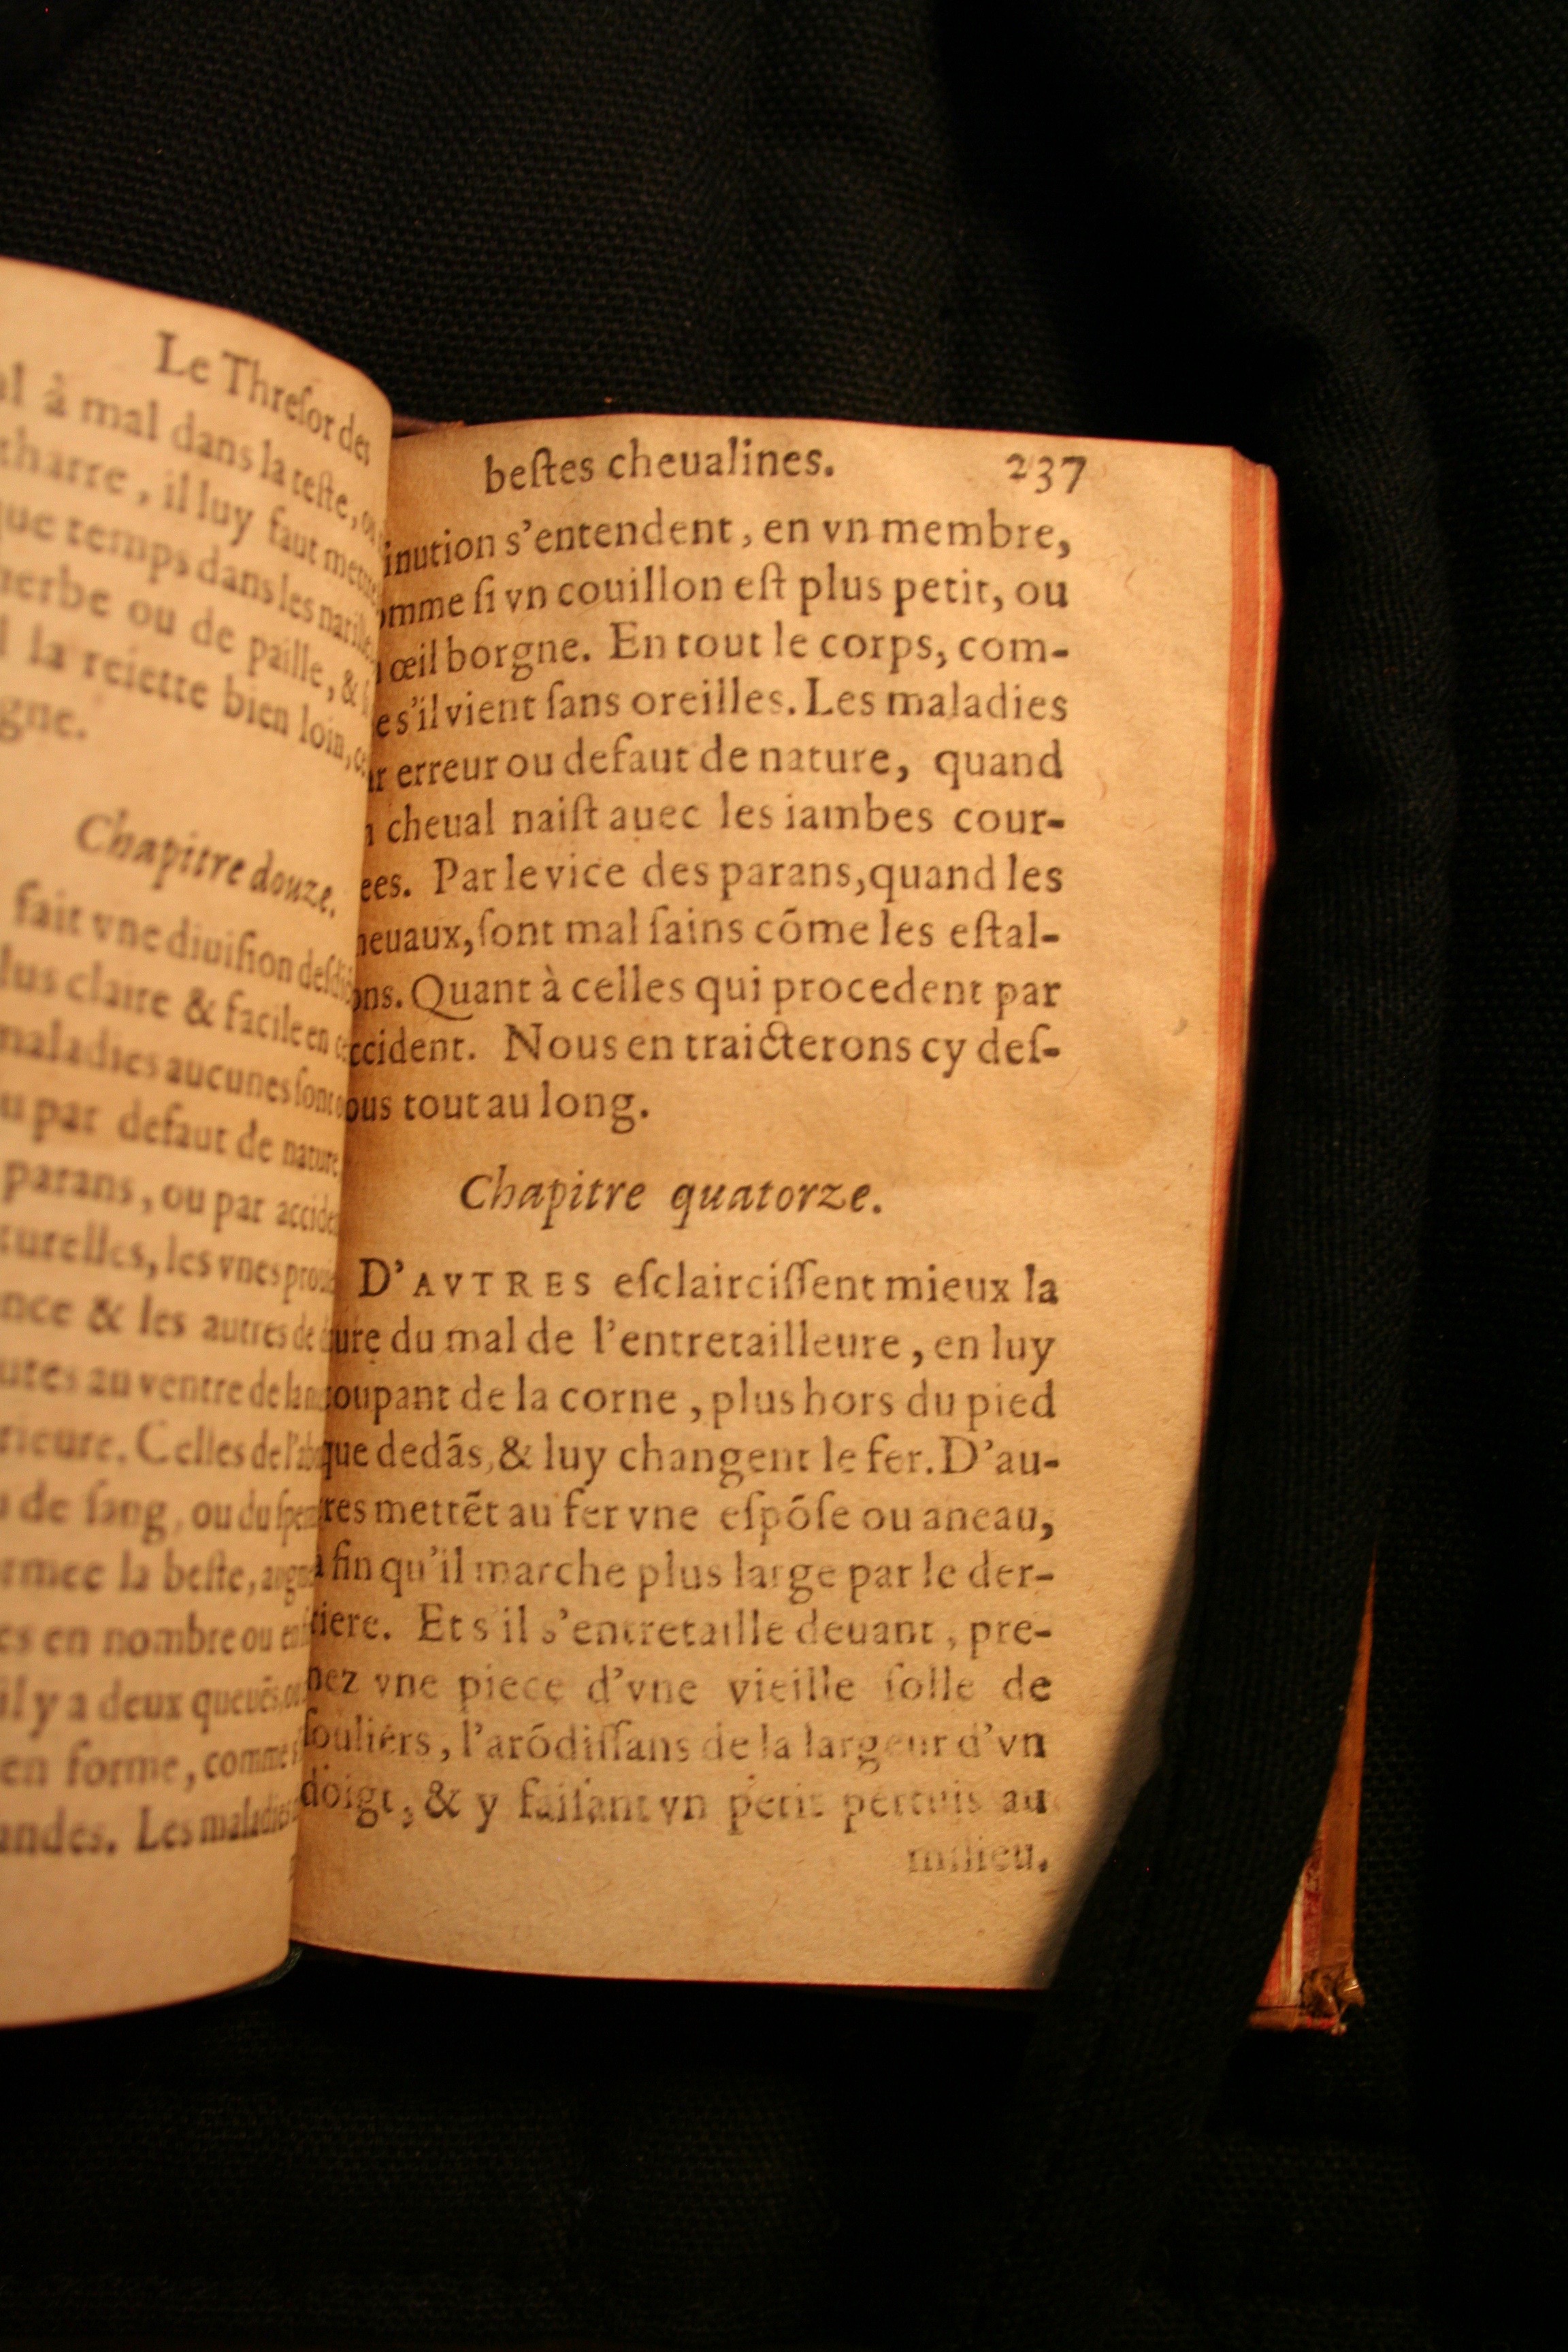 Le Threſor des
à mal dans la teſte,
, il luy faut
temps dans les
ou de paille, &
la reiette bien loin,
Chapitre douze.
fait vne diuiſion
claire & facile en
maladies aucunes ſont
par defaut de nature
parans, ou par
les vnes
& les autres de
au ventre de la
Celles de
de ſang, ou du
la beſte,
en nombre ou en
il y a deux queuës,
en forme, comme
Les maladies
beſtes cheualines. 237
inution s'entendent, en vn membre,
omme ſi vn couillon eſt plus petit, ou
œil borgne. En tout le corps, com-
e s'il vient ſans oreilles. Les maladies
r erreur ou defaut de nature, quand
cheual naiſt auec les iambes cour-
ees. Par le vice des parans, quand les
heuaux, ſont mal ſains cõme les eſtal-
ons. Quant à celles qui procedent par
ccident. Nous en traicterons cy deſ-
ous tout au long.
Chapitre quatorze.
D'AVTRES eſclairciſſent mieux la
ure du mal de l'entretailleure, en luy
coupant de la corne, plus hors du pied
que dedãs, & luy changent le fer. D'au-
tres mettẽt au fer vne eſpõſe ou aneau,
à fin qu'il marche plus large par le der-
riere. Et s il s'entretaille deuant, pre-
nez vne piece d'vne vieille ſolle de
ſouliers, l'arõdiſſans de la largeur d'vn
doigt, & y faiſant vn petit pertuis au
milieu.